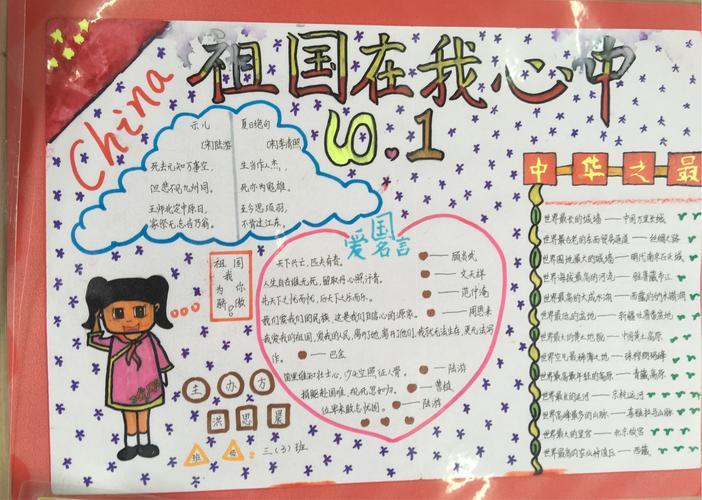 China
祖国在我心中
10.1
示儿
(宋)陆游
死去元知万事空,
但悲不见九州同。
王师北定中原日,
家祭无忘告乃翁。
夏日绝句
(宋)李清照
生当作人杰,
死亦为鬼雄。
至今思项羽,
不肯过江东。
爱国名言
天下兴亡,匹夫有责。——顾炎武
人生自古谁无死,留取丹心照汗青。——文天祥
先天下之忧而忧,后天下之乐而乐。——范仲淹
我们爱我们的民族,这是我们自信心的源泉。——周恩来
我爱我的祖国,爱我的人民,离开了她,离开了他们,我就无法生存,更无法写
作。——巴金
笛里谁知壮士心,沙头空照征人骨。——陆游
捐躯赴国难,视死忽如归。——曹植
位卑未敢忘忧国。——陆游
祖国
我
为你
骄傲
主办方
洪思晨
班
三(3)班
中华之最
世界最长的城墙——中国万里长城
世界最古老的东西贸易通道——丝绸之路
世界围地最大的城墙——明代南京石头城
世界海拔最高的河流——雅鲁藏布江
世界最高的大咸水湖——西藏的纳木错湖
世界最低的盆地——新疆吐鲁番盆地
世界最大的黄土地貌——中国黄土高原
世界最高最年轻的高原——青藏高原
世界最长的运河——京杭运河
世界高峰最多的山脉——喜马拉雅山脉
世界最大的皇宫——北京故宫